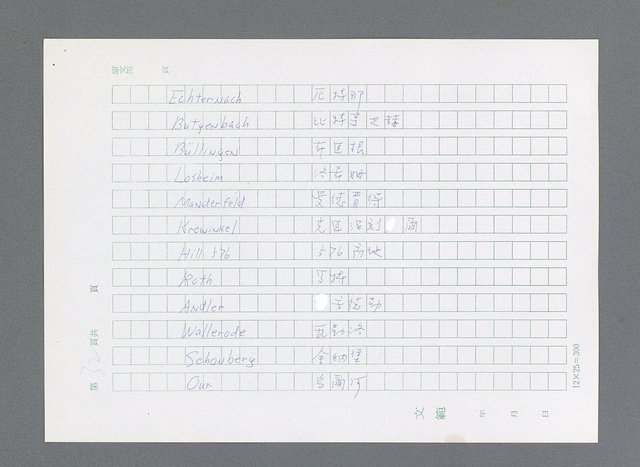 頁
Echternach 厄特那
Butgenbach 比特享巴赫
Büllingen 布匡根
Losheim 洛希姆
Manderfeld 曼德費得
Krewinkel 克匡溫刻 爾
Hill 576 576高地
Roth 罗特
Andler 安德勒
Wallerode 瓦勒洛
Schonberg 金納堡
Our 烏爾河
第 32 頁共 頁
12×25=300
文範 年 月 日